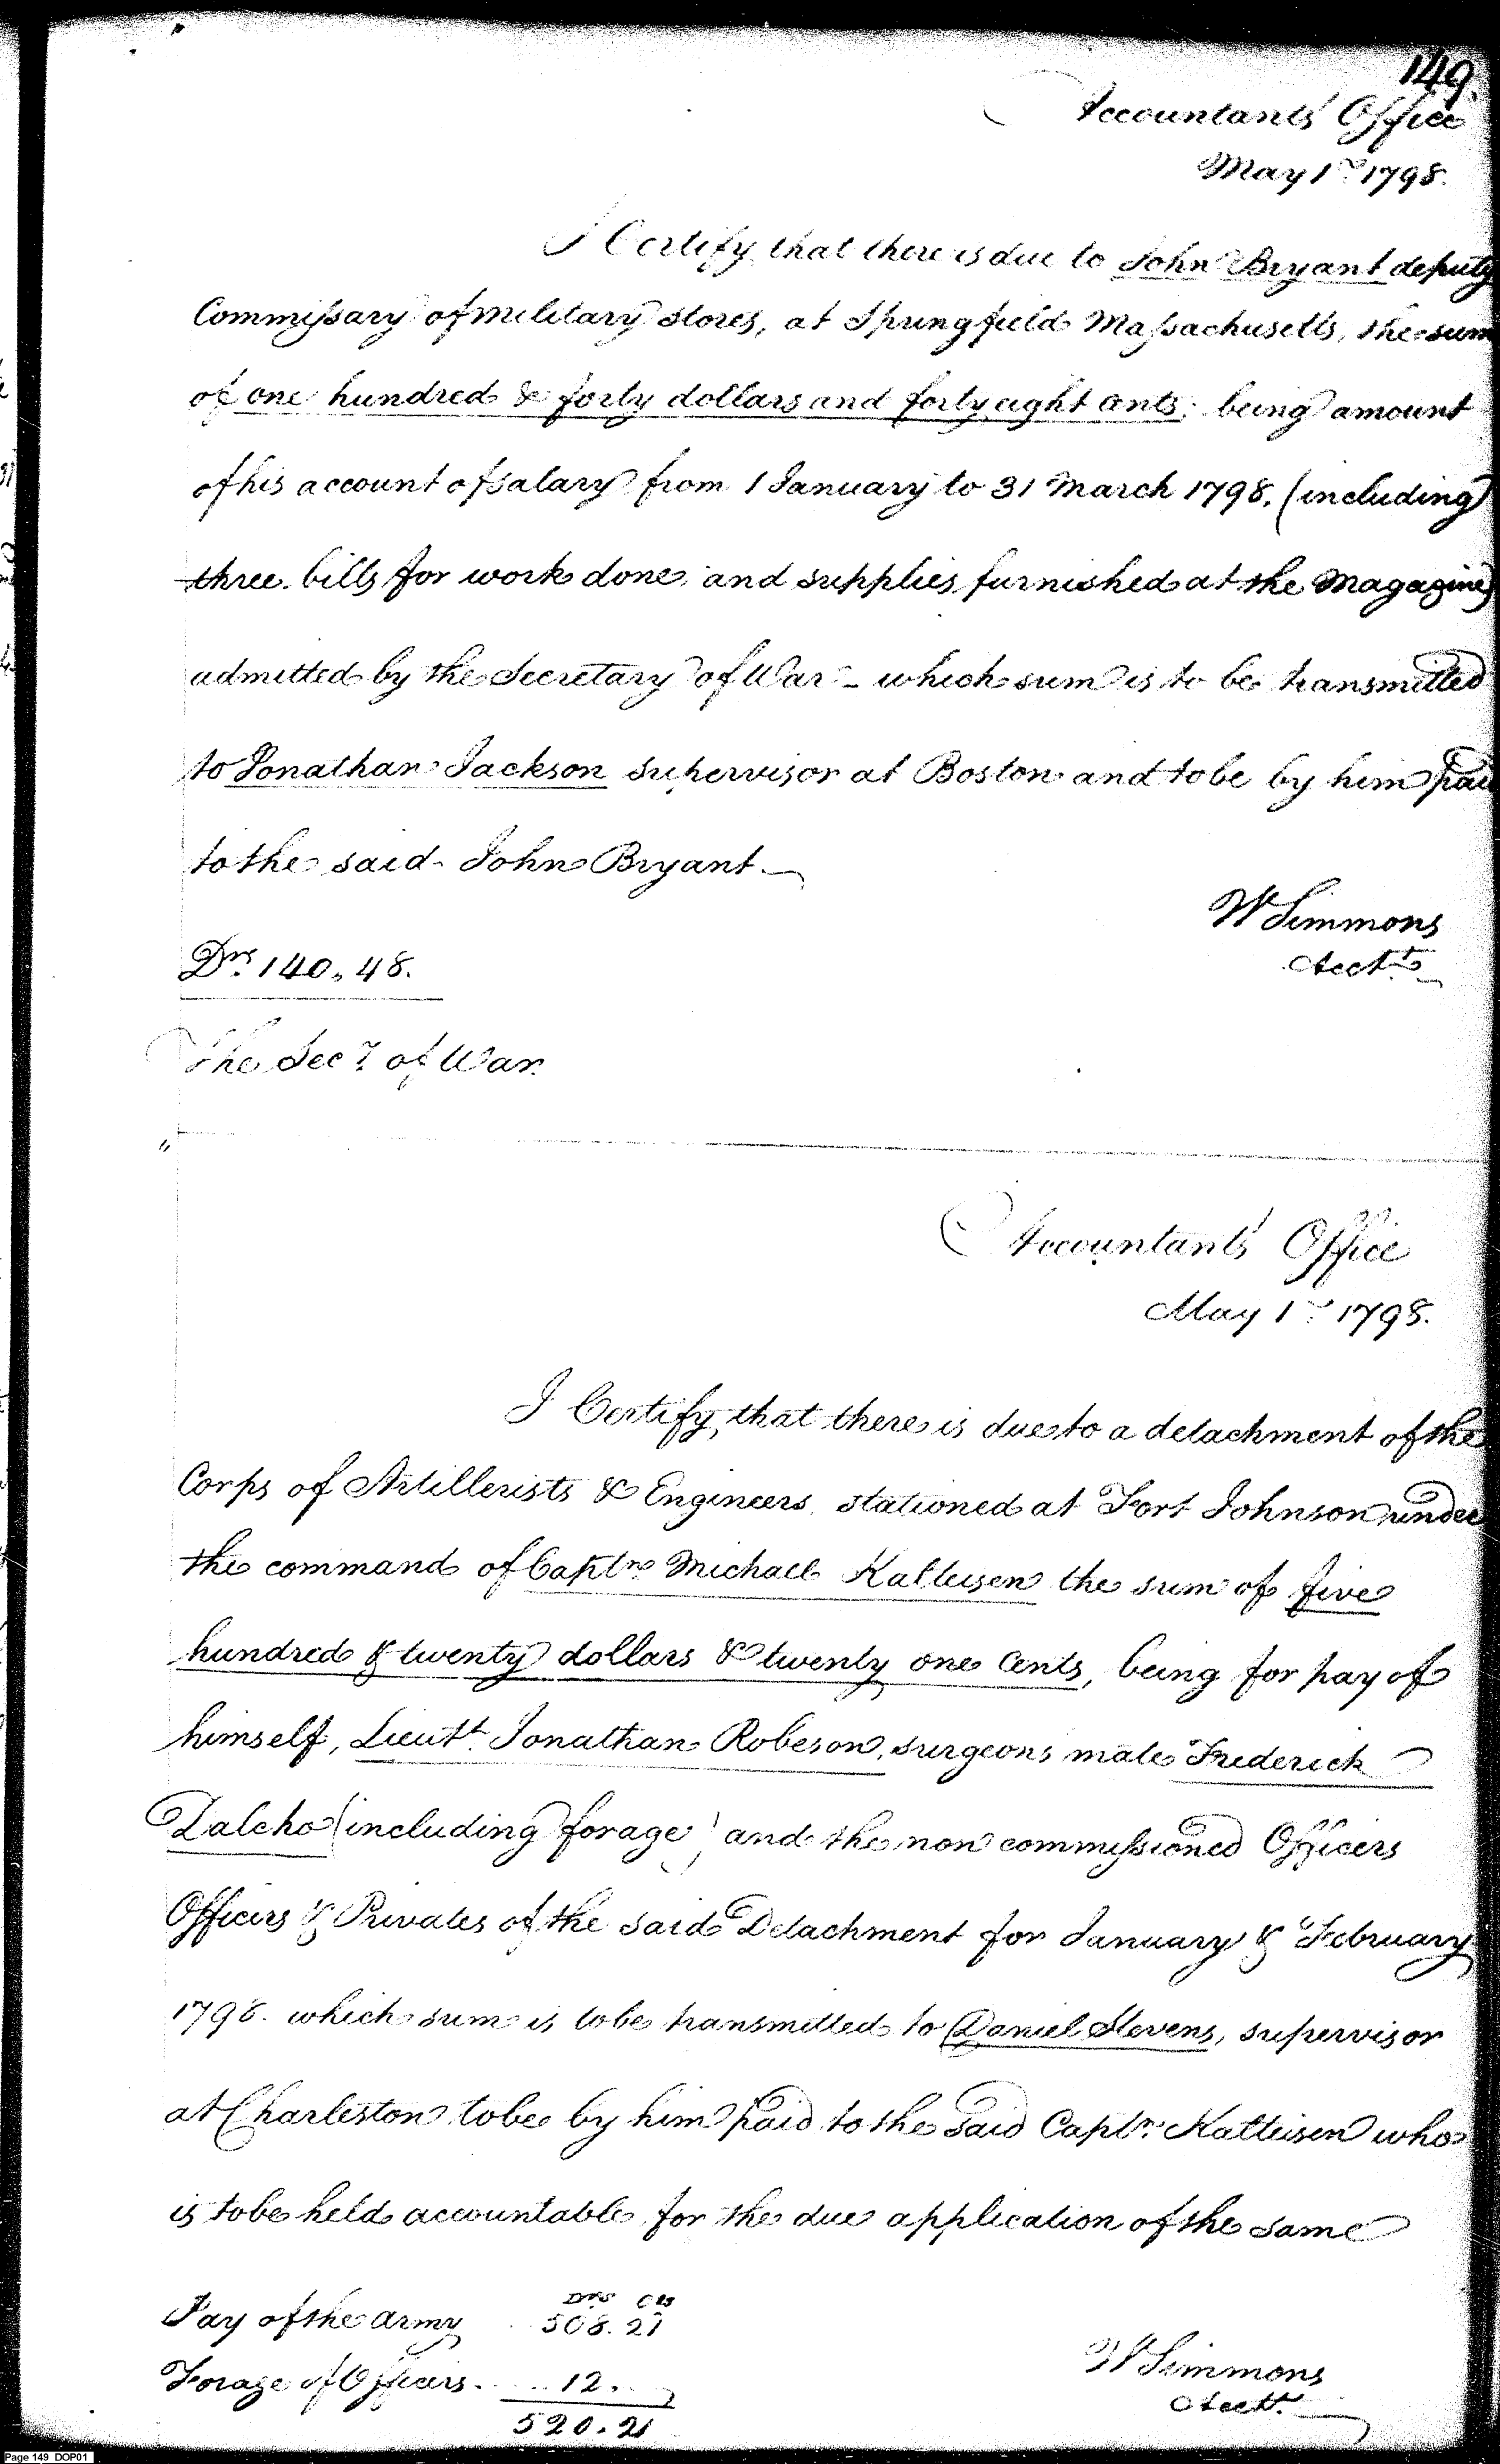 149.
Accountants Office
May 1st 1798.
I Certify that there is due to John Bryant deputy
Commissary of military stores, at Springfield Massachusetts, the sum
of one hundred & forty dollars and forty eight cents, being amount
of his account of salary from 1 January to 31 March 1798, (including
three bills for work done, and supplies furnished at the Magazine)
admitted by the Secretary of War - which sum is to be transmitted
to Jonathan Jackson supervisor at Boston and to be by him paid
to the said John Bryant.
W Simmons
Acctt
Drs 140.48.
The Secy of War.
Accountants' Office
May 1st 1798.
I Certify, that there is due to a detachment of the
Corps of Artillerists & Engineers, stationed at Fort Johnson under
the command of Captn Michael Kalteisen the sum of five
hundred & twenty dollars & twenty one cents, being for pay of
himself, Lieutt Jonathan Robeson, surgeons mate Frederick
Dalcho (including forage) and the non commissioned Officers
Officers & Privates of the said Detachment for January & February
1798. which sum is to be transmitted to Daniel Stevens, supervisor
at Charleston to be by him paid to the said Captn. Kalteisen who
is to be held accountable for the due application of the same
Drs Cts
Pay of the army 508.21
Forage of Officers. .... 12.
520.21
W Simmons
Acctt.
Page 149 DOP01